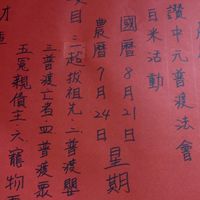 讚中元普渡法會
白米活動
國曆8月21日
農曆7月24日
星期
項目:一超拔祖先二普渡嬰
三普渡亡者四普渡眾
五冤親債主六寵物